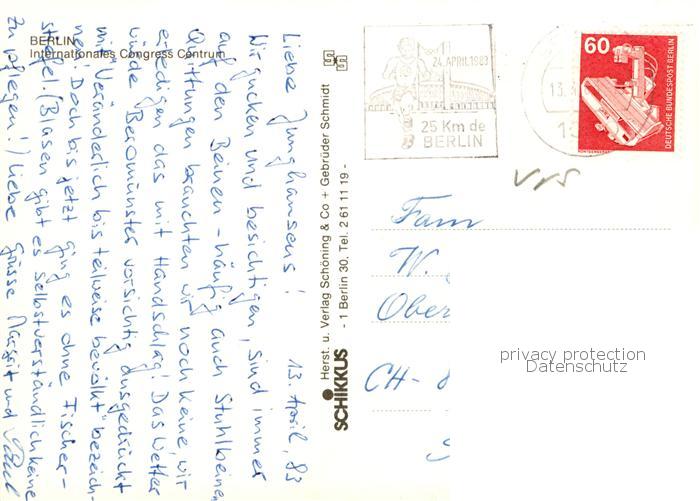 BERLIN
Internationales Congress Centrum
Liebe Junghansens! 13. April, 83
Wir gucken und besichtigen, sind immer
auf den Beinen - häufig auch Stuhlbeinen,
Quittungen brauchten wir noch keine, wir
erledigen das mit Handschlag! Das Wetter
würde Beromünster vorsichtig ausgedrückt
mit "Veränderlich bis teilweise bewölkt" bezeich-
nen. Doch bis jetzt ging es ohne Fischer-
stiefel. (Blasen gibt es selbstverständlich keine
zu pflegen!) Liebe Grüsse Margrit und
SCHIKKUS
Herst. u. Verlag Schöning & Co + Gebrüder Schmidt
- 1 Berlin 30. Tel. 2 61 11 19 -
24. APRIL 1983
25 Km de
BERLIN
13.
1
60
DEUTSCHE BUNDESPOST BERLIN
RÖNTGENGERÄT
Fam
W.
Ober
CH-
privacy protection
Datenschutz